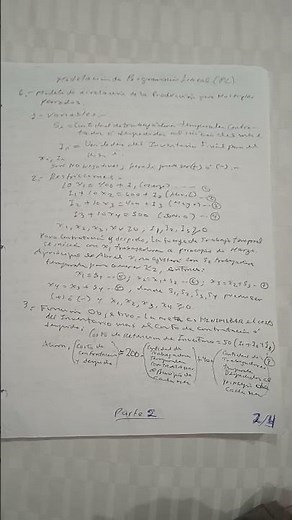 Modelación de Programación Lineal (PL)
6.- Modelo de nivelación de la Producción para Múltiples
Períodos
1.- Variables.-
= Cantidad de trabajadores temporales
o despedidos al inicio del mes
= Unidades del Inventario final del
mes
2.- Restricciones.-
10 X1 = 400 + I1 (Marzo) --- ①
I1 + 10 X2 = 600 + I2 (Abril) --- ②
I2 + 10 X3 = 400 + I3 (Mayo) --- ③
I3 + 10 X4 = 500 (Junio) --- ④
X1, X2, X3, X4 ≥ 0, I1, I2, I3 ≥ 0
Para contratación y despido, la fuerza de Trabajo Temporal
se inicia con X1 Trabajadores a principio de Marzo
A principios de Abril X1 se ajustará con S2 trabajadores
temporales para generar X2,
X1 = S1 ; X2 = X1 + S2 ; X3 = X2 + S3
X4 = X3 + S4 , donde S1, S2, S3, S4 pueden ser
(+) o (-) y X1, X2, X3, X4 ≥ 0
3.- Función Objetivo.- La meta es MINIMIZAR el costo
del Inventario más el costo de contratación o
despido. Costo de retención de Inventario = 50 (I1 + I2 + I3)
Ahora, (Costo de Contratación y despido) = 200 (Cantidad de
Trabajadores
temporales
Contratados
a Principio de
Cada Mes) + 400 (Cantidad de
Trabajadores
temporales
Despedidos al
principio de
Cada Mes)
Parte 2
2/4